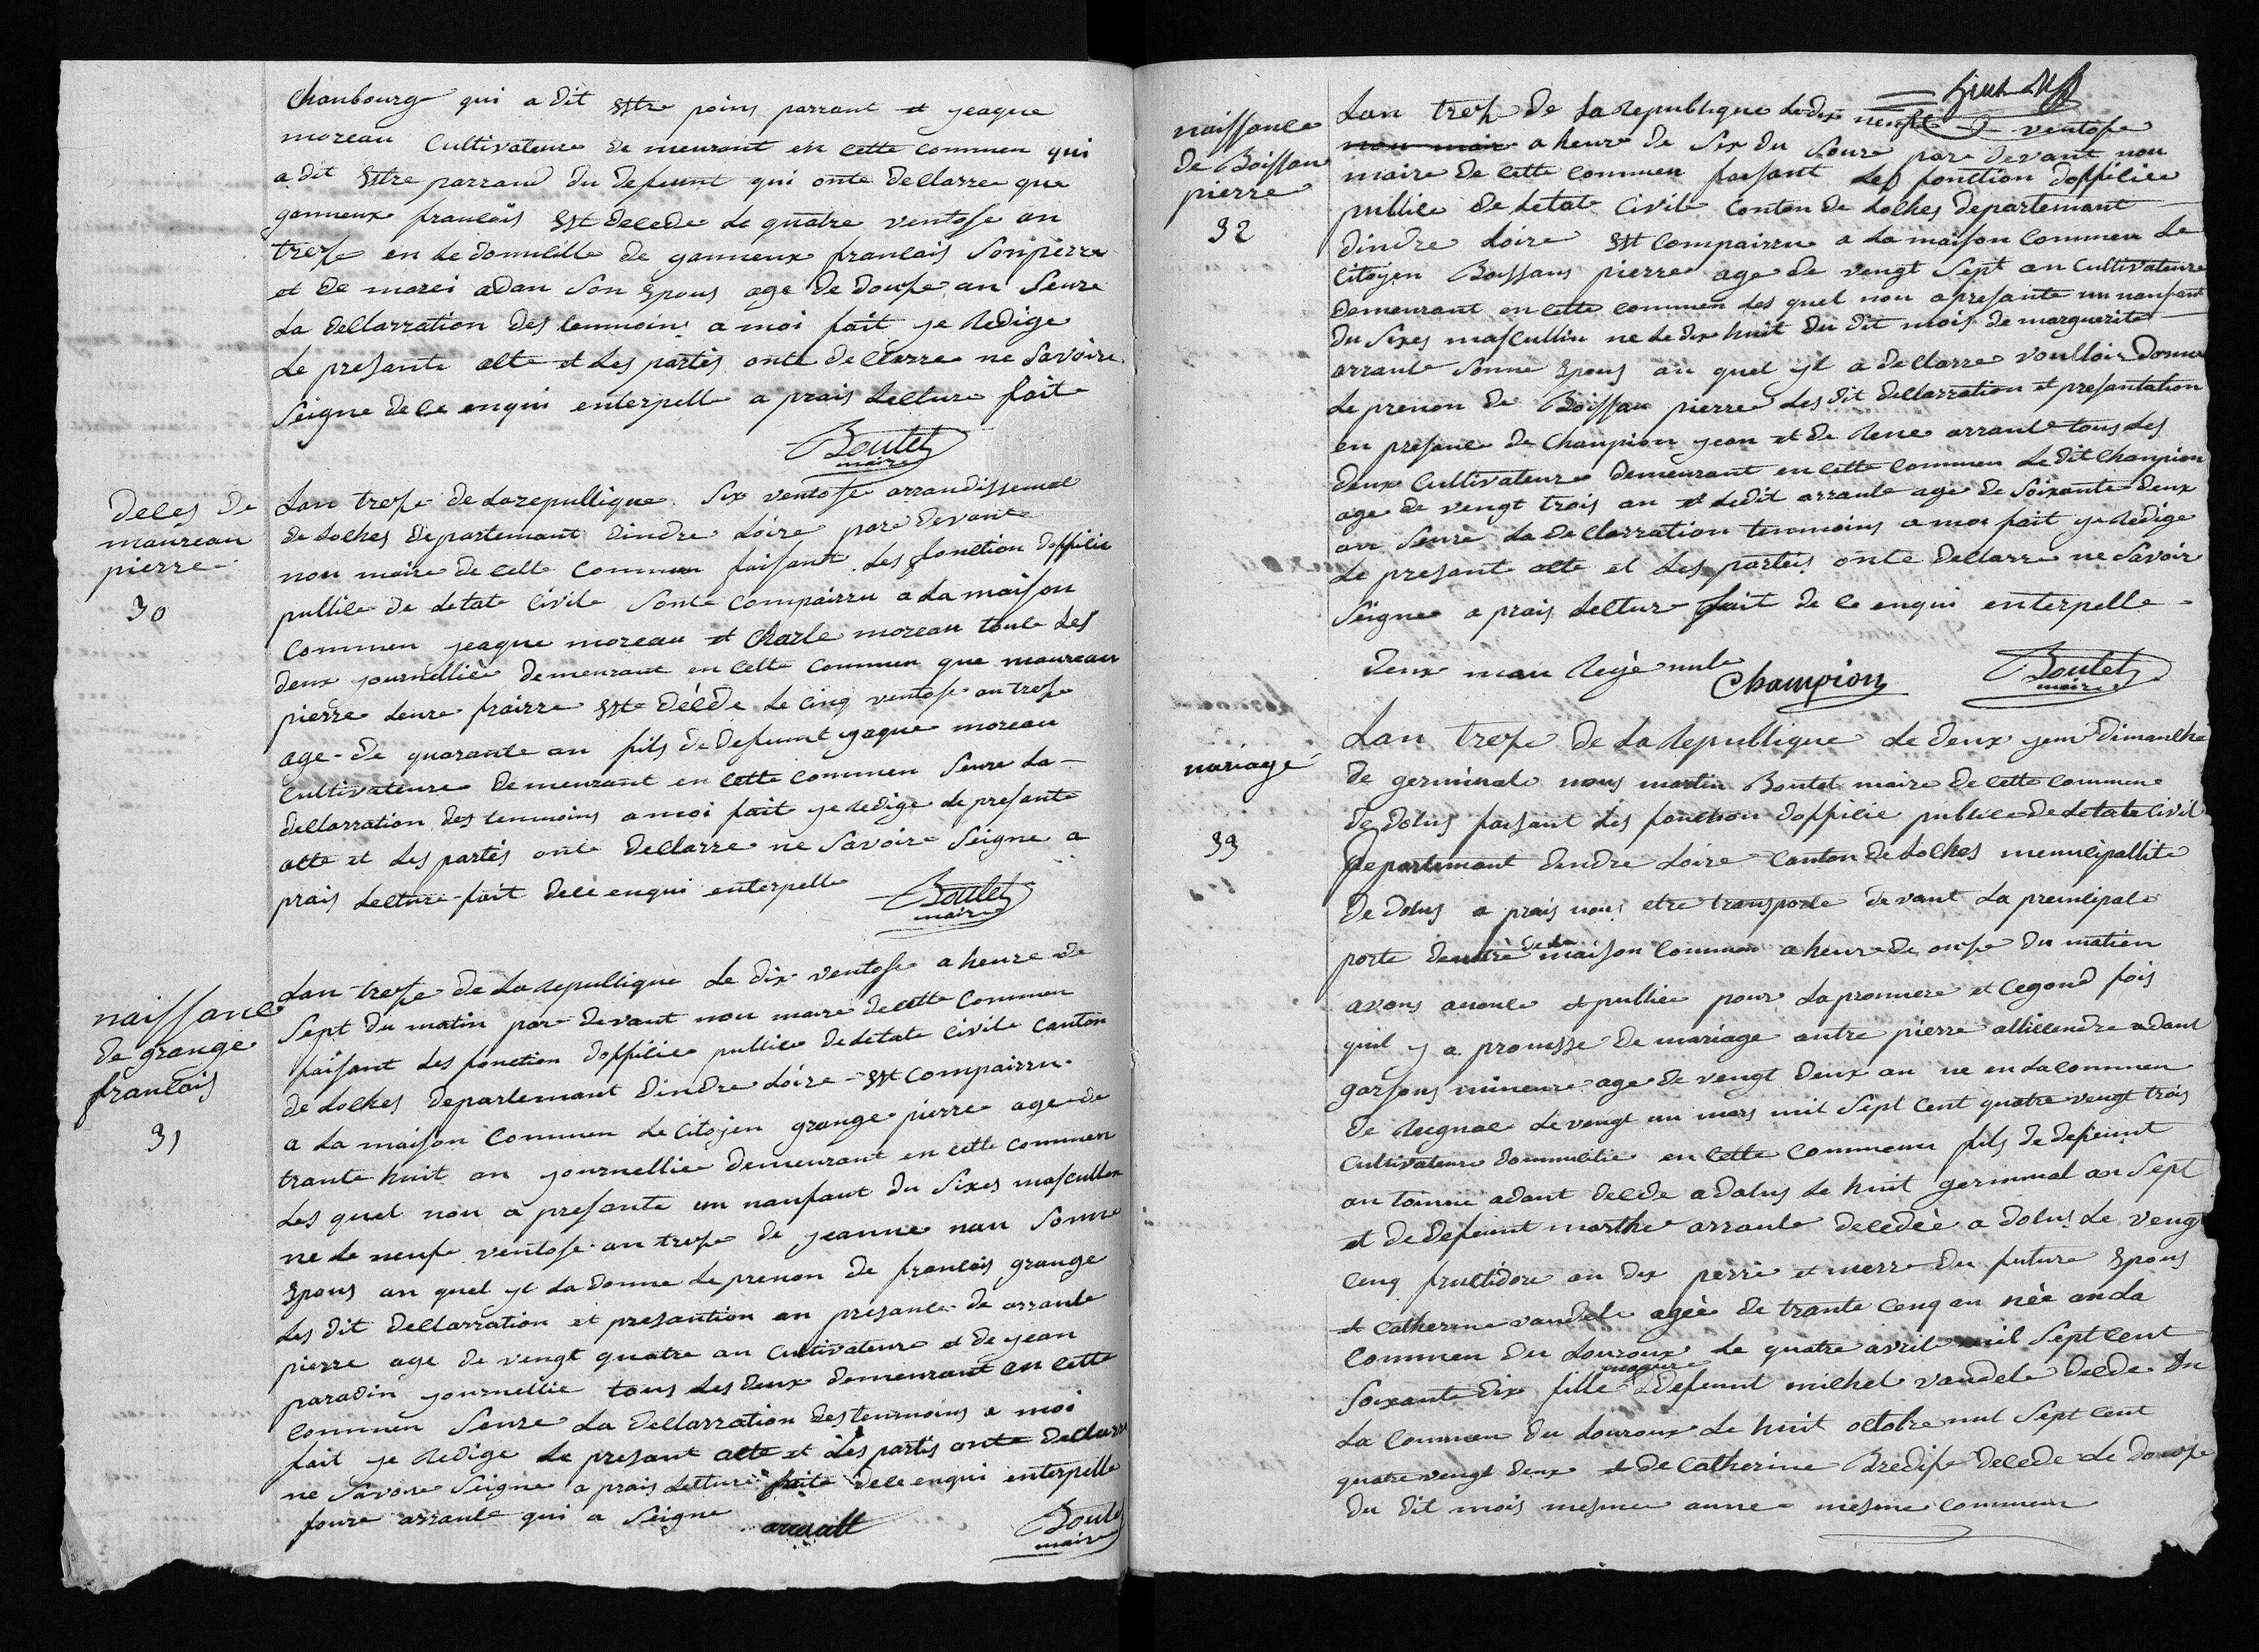 Chanbourge qui a dit sttre poins parrant et jeaque
moreau Cultivateure de meurant en cette commen qui
a dit sttre parrand du defeunt qui onte declarre que
ganneux francois stt decede le quatre ventose an
trese en le domicille de ganneux francais son pierre
et de marei adan son Epous age de douse an seure
la decllarration des temmoins a moi fait je redige
le presante acte et les partis onte declarre ne savoire
seigne de ce enqui enterpelle a prais lecture fait
Boutet
maire
deces de
maureau
pierre
30
Lan trese de la republique six ventose arrandissemae
de loches departemant dindre loire pare devante
nou maire de cette commen faisant les fonction dofficie
publice de letate civile sonte compairru a la maison
commen jeaque moreau et Charle moreau toule les
deux journelliè demeurant en cette commen que maureau
pierre leure frairre stte dècède le cinq ventose an trese
age de quarante an fils de defeunt jaque moreau
cultivateure demeurant en cette commen seure la
decllarration des temmoins a moi fait je redige le presante
acte et les partis onte decllarre ne savoire seigne a
prais lecture fait de ce enqui enterpelle
Boutet
maire
naissance
de grange
francais
31
Lan trese de la republique le dix ventose a heure de
sept du matin pare devant nou maire de cette commen
faisant les fonction dofficie publice de letate civile canton
de loches departemant dindre loire stt compairru
a la maison commen le citojen grange pierre age de
trante huit an journellie demeurant en cette commen
les quel nou a presante un nanfant du sixes mascullin
ne le neufe ventose an trese de jeanne nau sonne
Epous au quel yl la donne le prenon de francois grange
les dit decllarration et presantion an presance de arraulte
pierre age de vengt quatre an cultivateure et de jean
paradin journellie tous les deux demeurant en cette
commen seure la decllarration des temmoins a moi
fait je redige le presant acte et les partis onte decllarre
ne savoire seigne a prais lecture faite de ce enqui enterpelle
foure arraulte qui a seigne
arrault
Boutet
maire
naissance
de Boissau
pierre
32
Lan trese de la republique le dix neuf de ventose
nou mair a heure de six du soure pare devant nou
maire de cette commen faisant les fonction dofficie
publice de letate civile conton de loches departemant
dindre loire stt compairru a la maison commen le
citojen Boissaus pierre age de vengt sept an cultivateure
demeurant en cette commen les quel nou a presante un nanfant
du sixes mascullin ne le dix huit du dit mois de marguerite
arraulte sonne Epous au quel yl a decllarre voulloir donne
le prenon de Boissau pierre les dit decllarration et presantation
en presance de Chanpion jean et de rene arraulte tous les
deux cultivateure demeurant en cette commen le dit chanpion
age de vengt trois an et ledit arraulte age de soixante deux
an seure la decllarration temmoins a moi fait je redige
le presant acte et les parteis onte decllarre ne savoir
seigne a prais lecture fait de ce enqui enterpelle
deux mau reyè nule
Champion
Boutet
maire
mariage
33
Lan trese de la republique le deux jeme dimanche
de germinale nous martin Boutet maire de cette commene
de dolus faisant les fonction dofficie publice de letate civil
departemant dendre loire canton de loches menucipallite
de dolus a prais nous etre transporte devant la preincipale
porte dentrè de la maison commen a heure de onse du matien
avons anonce et publiee pour la promiere et cegond fois
quil y a promesse de mariage antre pierre allixendre adant
garsons mineure age de vengt deux an ne en la commen
de reignac le vengt un mars mil sept cent quatre vengt trois
cultivateure dommicilie en cette commenn fils de defeunt
an toinne adant decede a dolus le huit germinal an sept
et de defeunt marthe arraulte decedèe a dolus le vengt
cenq fructidore an dix perre et merre du future Epous
et catherine vandele agèe de trante cenq an nèe an la
commen du louroux le quatre avrile mil sept cent
soixante dix fille mageure defeunt michel vandele decede en
la commen du louroux le huit octobre mil sept cent
quatre vengt deux et de catherine Bredife decede le douse
du dit mois mesme anne mesme commenn